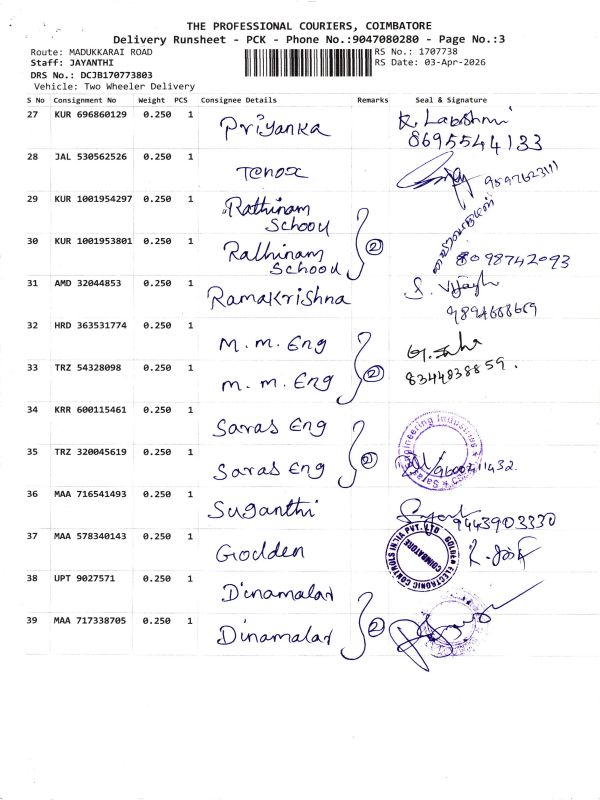 THE PROFESSIONAL COURIERS, COIMBATORE
Delivery Runsheet - PCK - Phone No.:9047080280 - Page No.:3
Route: MADUKKARAI ROAD RS No.: 1707738
Staff: JAYANTHI RS Date: 03-Apr-2026
DRS No.: DCJB170773803
Vehicle: Two Wheeler Delivery
S No Consignment No Weight PCS Consignee Details Remarks Seal & Signature
27 KUR 696860129 0.250 1 Priyanka R. Lakshmi
8695544133
28 JAL 530562526 0.250 1 Tenox
29 KUR 1001954297 0.250 1 Rathinam School
30 KUR 1001953801 0.250 1 Rathinam School 2 8098742093
31 AMD 32044853 0.250 1 Ramakrishna S. Vijay
32 HRD 363531774 0.250 1 M.M. Eng
33 TRZ 54328098 0.250 1 M.M. Eng 2 8344838859.
34 KRR 600115461 0.250 1 Saras Eng
35 TRZ 320045619 0.250 1 Saras Eng 2
36 MAA 716541493 0.250 1 Suganthi 9443903330
37 MAA 578340143 0.250 1 Golden GOLDEN ELECTRONIC CONTROLS INDIA PVT. LTD COIMBATORE
38 UPT 9027571 0.250 1 Dinamalar
39 MAA 717338705 0.250 1 Dinamalar 2